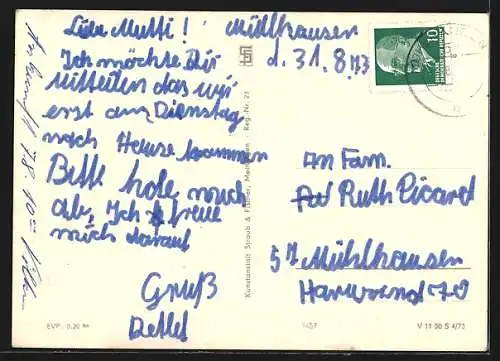 Liebe Mutti!
Mühlhausen
d. 31.8.73
Ich möchte Dir
mitteilen das wir
erst am Dienstag
nach Hause kommen
Bitte hole mich
ab, Ich freue
mich darauf
Gruß
Detlef
Ankunft 18.10
An Fam.
Ruth Picard
57 Mühlhausen
10
DEUTSCHE DEMOKRATISCHE REPUBLIK
Kunstanstalt Straub & Fischer, Meiningen · Reg.-Nr. 21
EVP 0,20
V 11 50 S 4/73